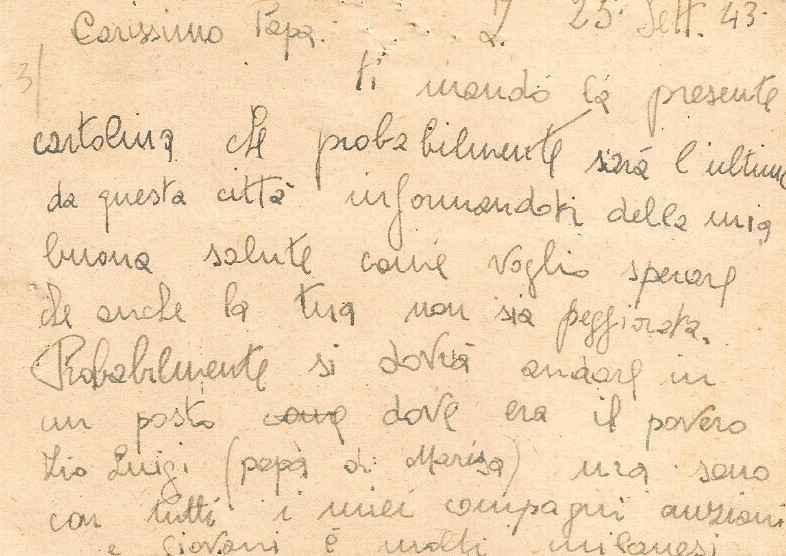 Carissimo Papà. Z. 25. Sett. 43.
3/ ti mando la presente
cartolina che probabilmente sarà l'ultima
da questa città informandoti della mia
buona salute come voglio sperare
che anche la tua non sia peggiorata.
Probabilmente si dovrà andare in
un posto come dove era il povero
Zio Luigi (papà di Marisa) ma sono
con tutti i miei compagni anziani
e giovani e molti milanesi